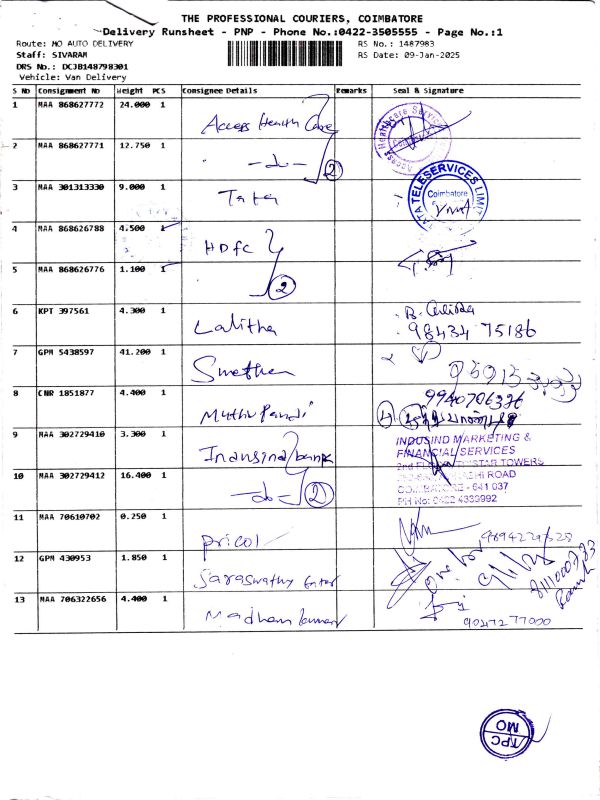 THE PROFESSIONAL COURIERS, COIMBATORE
Delivery Runsheet - PNP - Phone No.:0422-3505555 - Page No.:1
Route: MO AUTO DELIVERY
RS No.: 1487983
Staff: SIVARAM
RS Date: 09-Jan-2025
DRS No.: DCJB148798301
Vehicle: Van Delivery
S No Consignment No Weight PCS Consignee Details Remarks Seal & Signature
1 MAA 868627772 24.000 1 Access Health Care
Access Healthcare Services
2 MAA 868627771 12.750 1 -do- 2
3 MAA 301313330 9.000 1 Tata
TATA TELESERVICES LIMITED
Coimbatore
4 MAA 868626788 4.500 1 HDFC
5 MAA 868626776 1.100 1 2
6 KPT 397561 4.300 1 Lalitha
98434 75186
7 GPM 5438597 41.200 1 Swetha
8 CNR 1851877 4.400 1 Muthu Pandi
9940706336
9 MAA 302729410 3.300 1
INDUSIND MARKETING &
FINANCIAL SERVICES
10 MAA 302729412 16.400 1 -do- 2
TRISTAR TOWERS
ROAD
COIMBATORE - 641 037
PH No: 0422 4339992
11 MAA 70610702 0.250 1 Pricol
12 GPM 430953 1.850 1 Saraswathy
13 MAA 706322656 4.400 1 Madhan kumar
90472 77000
TPC
MO